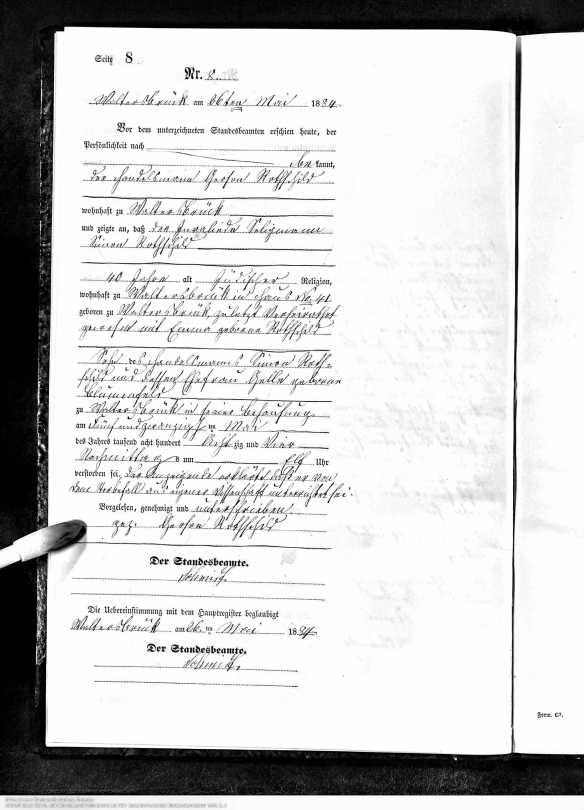 Seite 8
Nr. 8.
Waltersbrück am 26ten Mai 1884.
Vor dem unterzeichneten Standesbeamten erschien heute, der
Persönlichkeit nach
kannt,
der Handelsmann Gerson Rothschild
wohnhaft zu Waltersbrück
und zeigte an, daß der Seligmann
Simon Rothschild
40 Jahre alt Jüdischer Religion,
wohnhaft zu Waltersbrück in Haus No 41
geboren zu Waltersbrück, zuletzt Verheirathet
gewesen mit Emma geborene Rothschild
Sohn des Handelsmanns Simon Roth-
schild und dessen Ehefrau geborene
Blumenfeld
zu Waltersbrück in seiner Behausung
am fünf und zwanzigsten Mai
des Jahres tausend acht hundert Acht zig und Vier
Nachmittags um Elf Uhr
verstorben sei, der Anzeigende erklärte daß er von
dem Sterbefall aus eigener Wissenschaft unterrichtet sei.
Vorgelesen, genehmigt und unterschrieben
gez. Gerson Rothschild
Der Standesbeamte.
Die Uebereinstimmung mit dem Hauptregister beglaubigt
Waltersbrück am 26. ten Mai 1884
Der Standesbeamte.
Form. C².